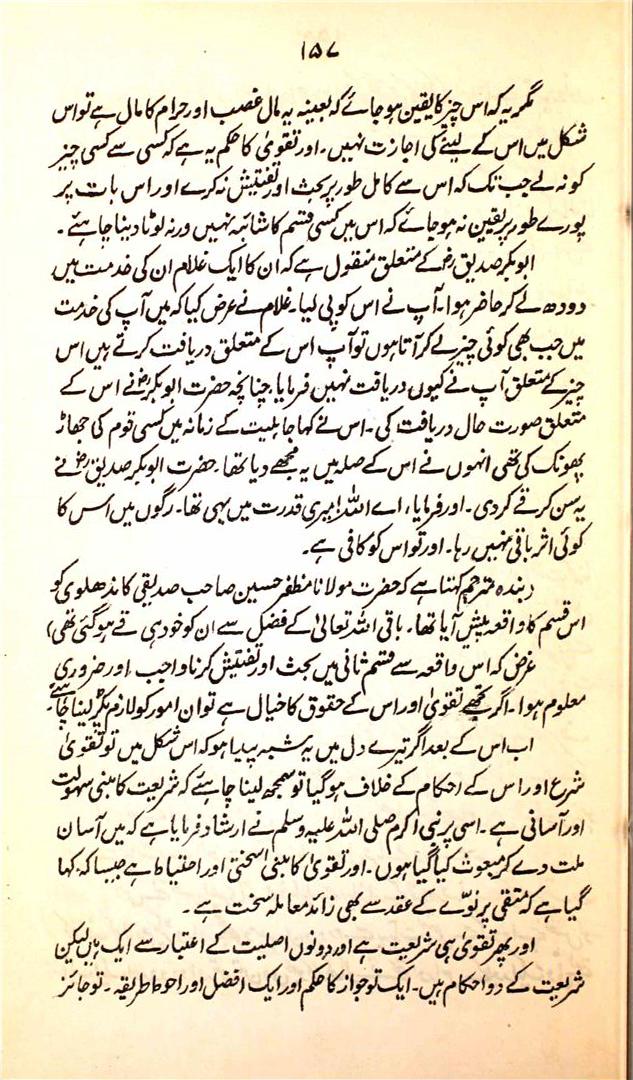 ۱۵۷
مگر یہ کہ اس چیز کا یقین ہو جائے کہ بعینہ یہ مال غصب اور حرام کا مال ہے تو اس
شکل میں اس کے لینے کی اجازت نہیں۔ اور تقویٰ کا حکم یہ ہے کہ کسی سے کسی چیز
کو نہ لے جب تک کہ اس سے کامل طور پر بحث اور تفتیش نہ کرے اور اس بات پر
پورے طور پر یقین نہ ہو جائے کہ اس میں کسی قسم کا شائبہ نہیں ورنہ لوٹا دینا چاہئے۔
ابوبکر صدیق رضؓ کے متعلق منقول ہے کہ ان کا ایک غلام ان کی خدمت میں
دودھ لے کر حاضر ہوا۔ آپ نے اس کو پی لیا۔ غلام نے عرض کیا کہ میں آپ کی خدمت
میں جب بھی کوئی چیز لے کر آتا ہوں تو آپ اس کے متعلق دریافت کرتے ہیں اس
چیز کے متعلق آپ نے کیوں دریافت نہیں فرمایا چنانچہ حضرت ابوبکرؓ نے اس کے
متعلق صورت حال دریافت کی۔ اس نے کہا جاہلیت کے زمانہ میں کسی قوم کی جھاڑ
پھونک کی تھی انہوں نے اس کے صلہ میں یہ مجھے دیا تھا۔ حضرت ابوبکر صدیقؓ نے
یہ سن کر قے کر دی۔ اور فرمایا، اے اللہ! میری قدرت میں یہی تھا۔ رگوں میں اس کا
کوئی اثر باقی نہیں رہا۔ اور تو اس کو کافی ہے۔
(بندہ مترجم کہتا ہے کہ حضرت مولانا مظفر حسین صاحب صدیقی کاندھلوی کو
اس قسم کا واقعہ پیش آیا تھا۔ باقی اللہ تعالیٰ کے فضل سے ان کو خود ہی قے ہو گئی تھی)
غرض کہ اس واقعہ سے قسم ثانی میں بحث اور تفتیش کرنا واجب اور ضروری
معلوم ہوا۔ اگر تجھے تقویٰ اور اس کے حقوق کا خیال ہے تو ان امور کو لازم پکڑ لینا چاہئے۔
اب اس کے بعد اگر تیرے دل میں یہ شبہ پیدا ہو کہ اس شکل میں تو تقویٰ
شرع اور اس کے احکام کے خلاف ہو گیا تو سمجھ لینا چاہئے کہ شریعت کا مبنی سہولت
اور آسانی ہے۔ اسی پر نبی اکرم صلی اللہ علیہ وسلم نے ارشاد فرمایا ہے کہ میں آسان
ملت دے کر مبعوث کیا گیا ہوں۔ اور تقویٰ کا مبنی سختی اور احتیاط ہے جیسا کہ کہا
گیا ہے کہ متقی پر نوّے کے عقد سے بھی زائد معاملہ سخت ہے۔
اور پھر تقویٰ ہی شریعت ہے اور دونوں اصلیت کے اعتبار سے ایک ہیں لیکن
شریعت کے دو احکام ہیں۔ ایک تو جواز کا حکم اور ایک افضل اور احوط طریقہ۔ تو جائز